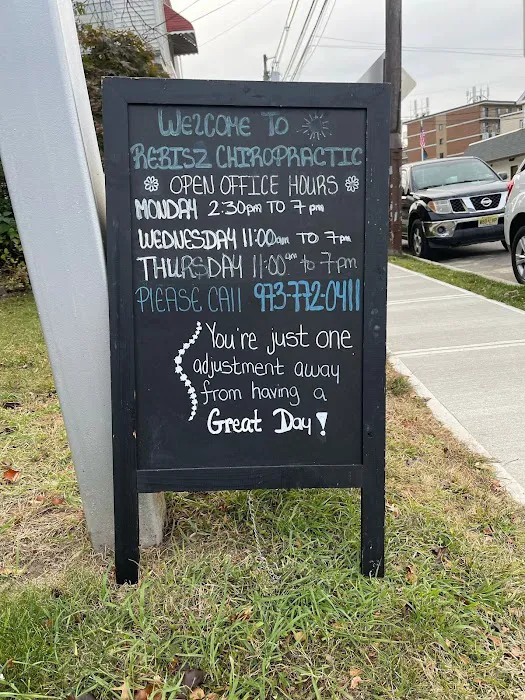 WELCOME TO
REBISZ CHIROPRACTIC
OPEN OFFICE HOURS
MONDAY 2:30pm TO 7pm
WEDNESDAY 11:00am TO 7pm
THURSDAY 11:00am to 7pm
PLEASE CAll 973-772-0411
You're just one
adjustment away
from having a
Great Day!